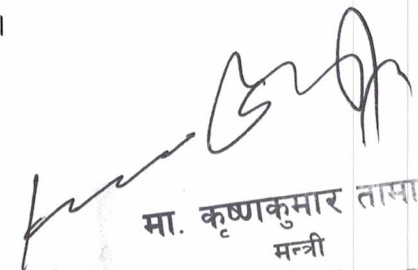 मा. कृष्णकुमार तामा
मन्त्री